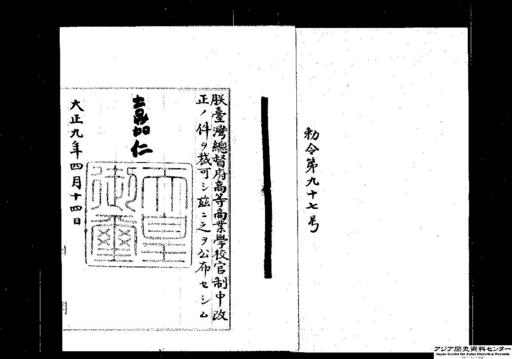 勅令第九十七号
朕臺灣總督府高等商業學校官制中改
正ノ件ヲ裁可シ茲ニ之ヲ公布セシム
嘉仁
天皇御璽
大正九年四月十四日
アジア歴史資料センター
Japan Center for Asian Historical Records